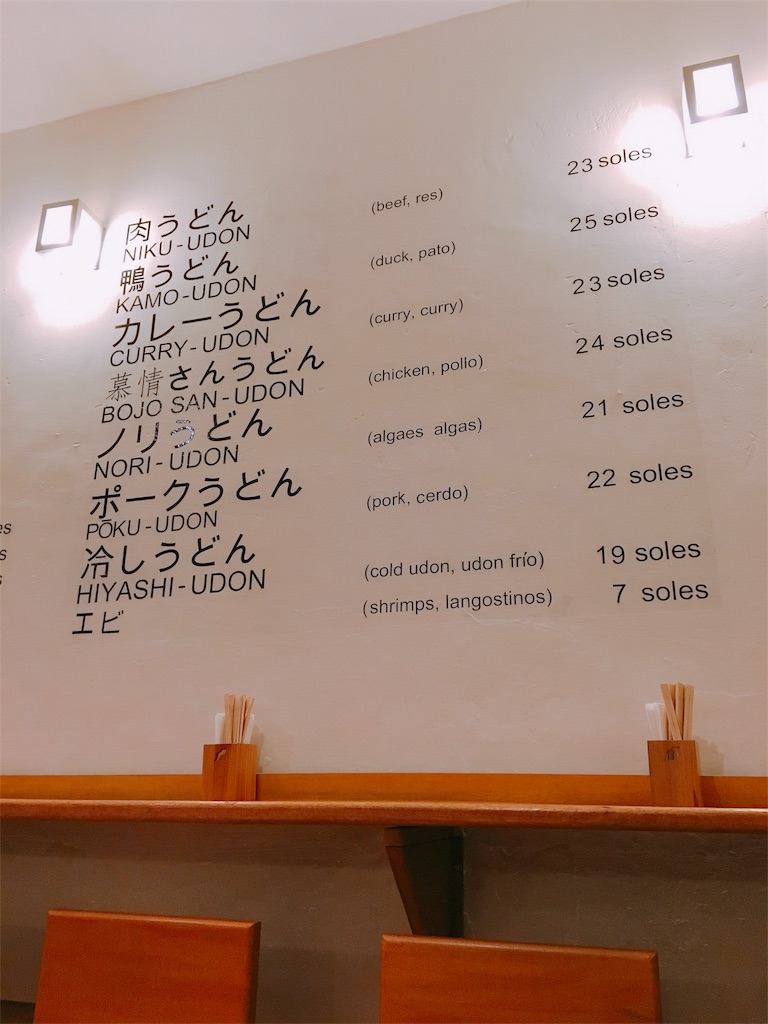 肉うどん
NIKU-UDON (beef, res) 23 soles
鴨うどん
KAMO-UDON (duck, pato) 25 soles
カレーうどん
CURRY-UDON (curry, curry) 23 soles
慕情さんうどん
BOJO SAN-UDON (chicken, pollo) 24 soles
ノリうどん
NORI-UDON (algaes algas) 21 soles
ポークうどん
PŌKU-UDON (pork, cerdo) 22 soles
冷しうどん
HIYASHI-UDON (cold udon, udon frío) 19 soles
エビ (shrimps, langostinos) 7 soles